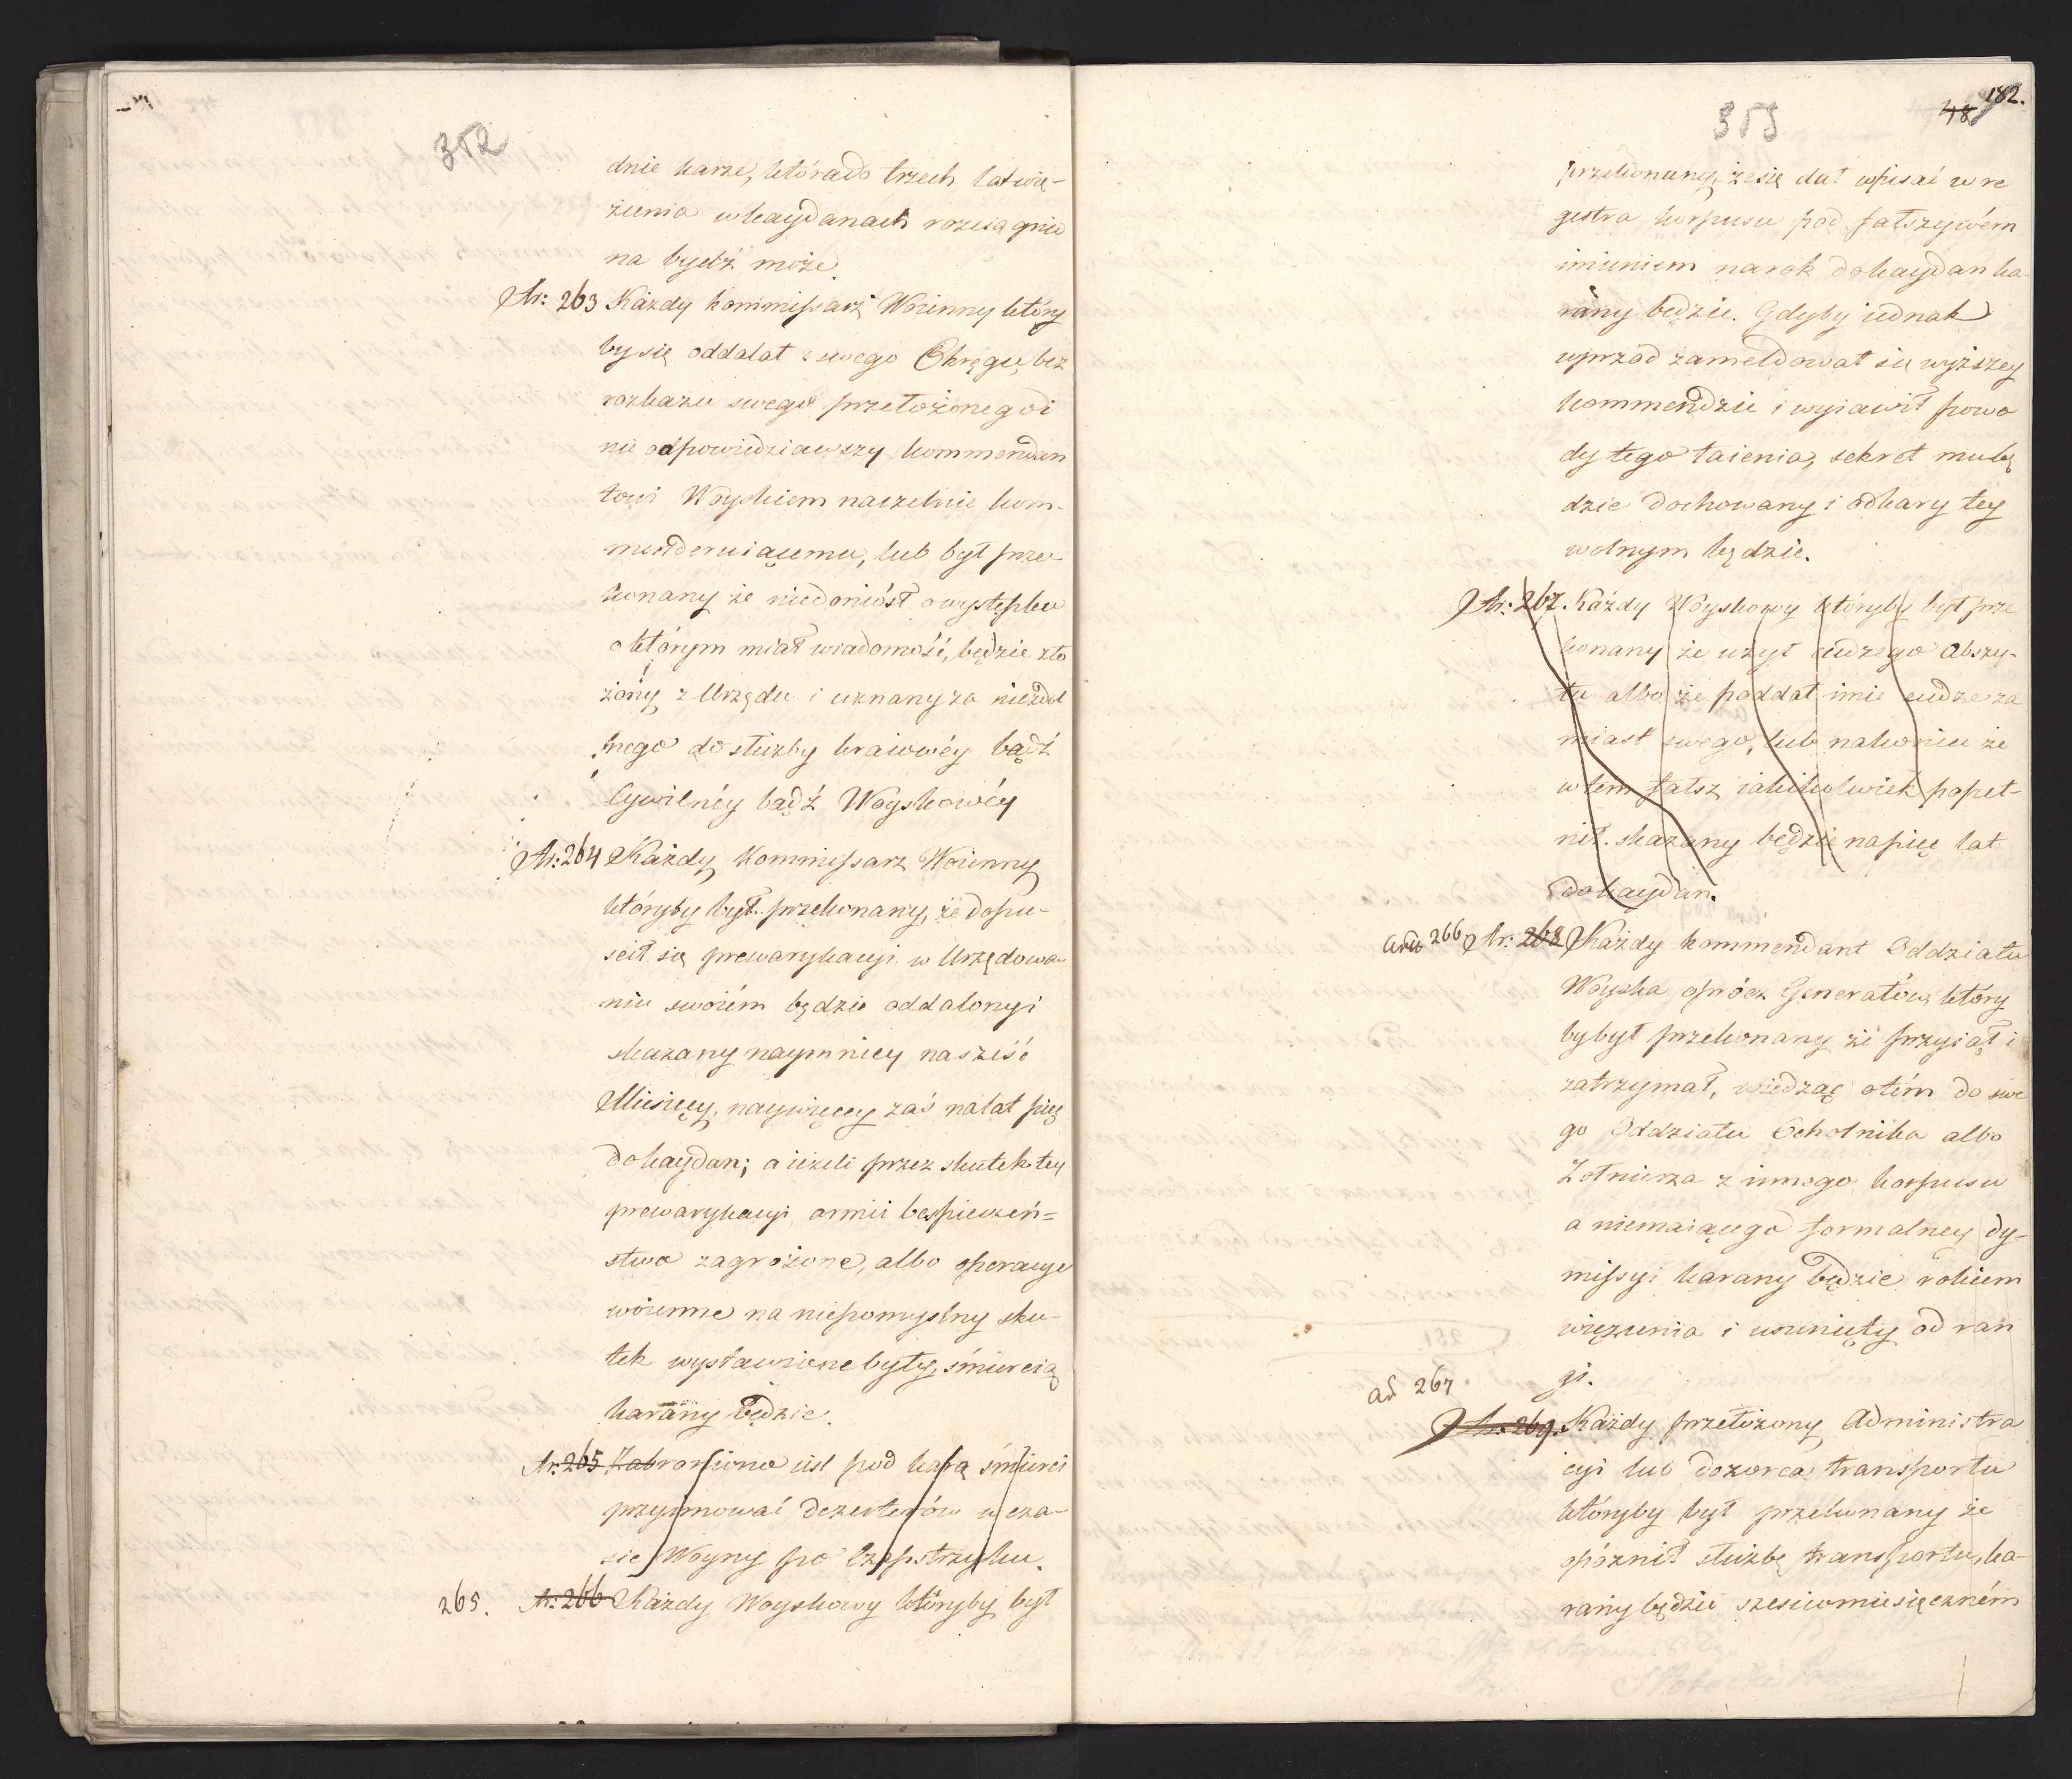 352
dnie karze, która do trzech lat wię-
zienia w kaydanach rozciągnio
na bydź może.
Ar: 263 Każdy kommissarz Woienny który
by się oddalał z swego Okręgu, bez
rozkazu swego przełożonego i
nie odpowiedziawszy kommendan
towi Woyskiem naczelnie kom-
menderuiącemu, lub był prze-
konany że niedoniósł o występku
o którym miał wiadomość, będzie zło
żony z Urzędu i uznany za niezdol
nego do służby kraiowéy bądź
Cywilnéy bądź Woyskowéy
Ar: 264 Każdy Kommissarz Woienny
któryby był przekonany, że dopu-
ścił się prewarykacyi w Urzędowa-
niu swoiém będzie oddalony i
skazany naymniey na sześć
Miesięcy, naywięcey zaś na lat pięć
do kaydan; a ieżeli przez skutek tey
prewarykacyi armii bespieczeń=
stwo zagrożone, albo operacye
woienne na niepomyslny sku-
tek wystawione były, śmiercią
karany będzie.
Ar: 265 Zabroniono iest pod karą śmierci
przyimować dezerterów w cza-
sie Woyny po Capstrzyku.
265. Ar: 266 Każdy Woyskowy któryby był
353
48 182.
przekonany, że się dał wpisać w re
gestra korpusu pod fałszywém
imieniem na rok do kaydan ka-
rany będzie. Gdyby iednak
wprzód zameldował się wyższey
kommendzie i wyiawił powo
dy tego taienia, sekret mu bę
dzie dochowany i od kary tey
wolnym będzie.
Ar: 267. Każdy Woyskowy któryby był prze
konany że użył cudzego Abszy-
tu albo że poddał imie cudze za
miast swego, lub nakoniec że
w tem fałsz iakikolwiek popeł-
nił. skazany będzie na pięć lat
do kaydan.
266 Ar: 268 Każdy kommendant Oddziału
Woyska oprócz Generałów, który
by był przekonany że przyiął i
zatrzymał, wiedząc o tém do swe
go Oddziału Ochotnika albo
Żołnierza z innego korpusu
a niemaiącego formalney dy-
missyi karany będzie rokiem
więzienia i usunięty od ran
gi.
ad 267
Ar: 269. Każdy przełożony Administra
cyi lub dozorca transportu
któryby był przekonany że
opóznił służbę transportu, ka-
rany będzie sześciomiesięczném